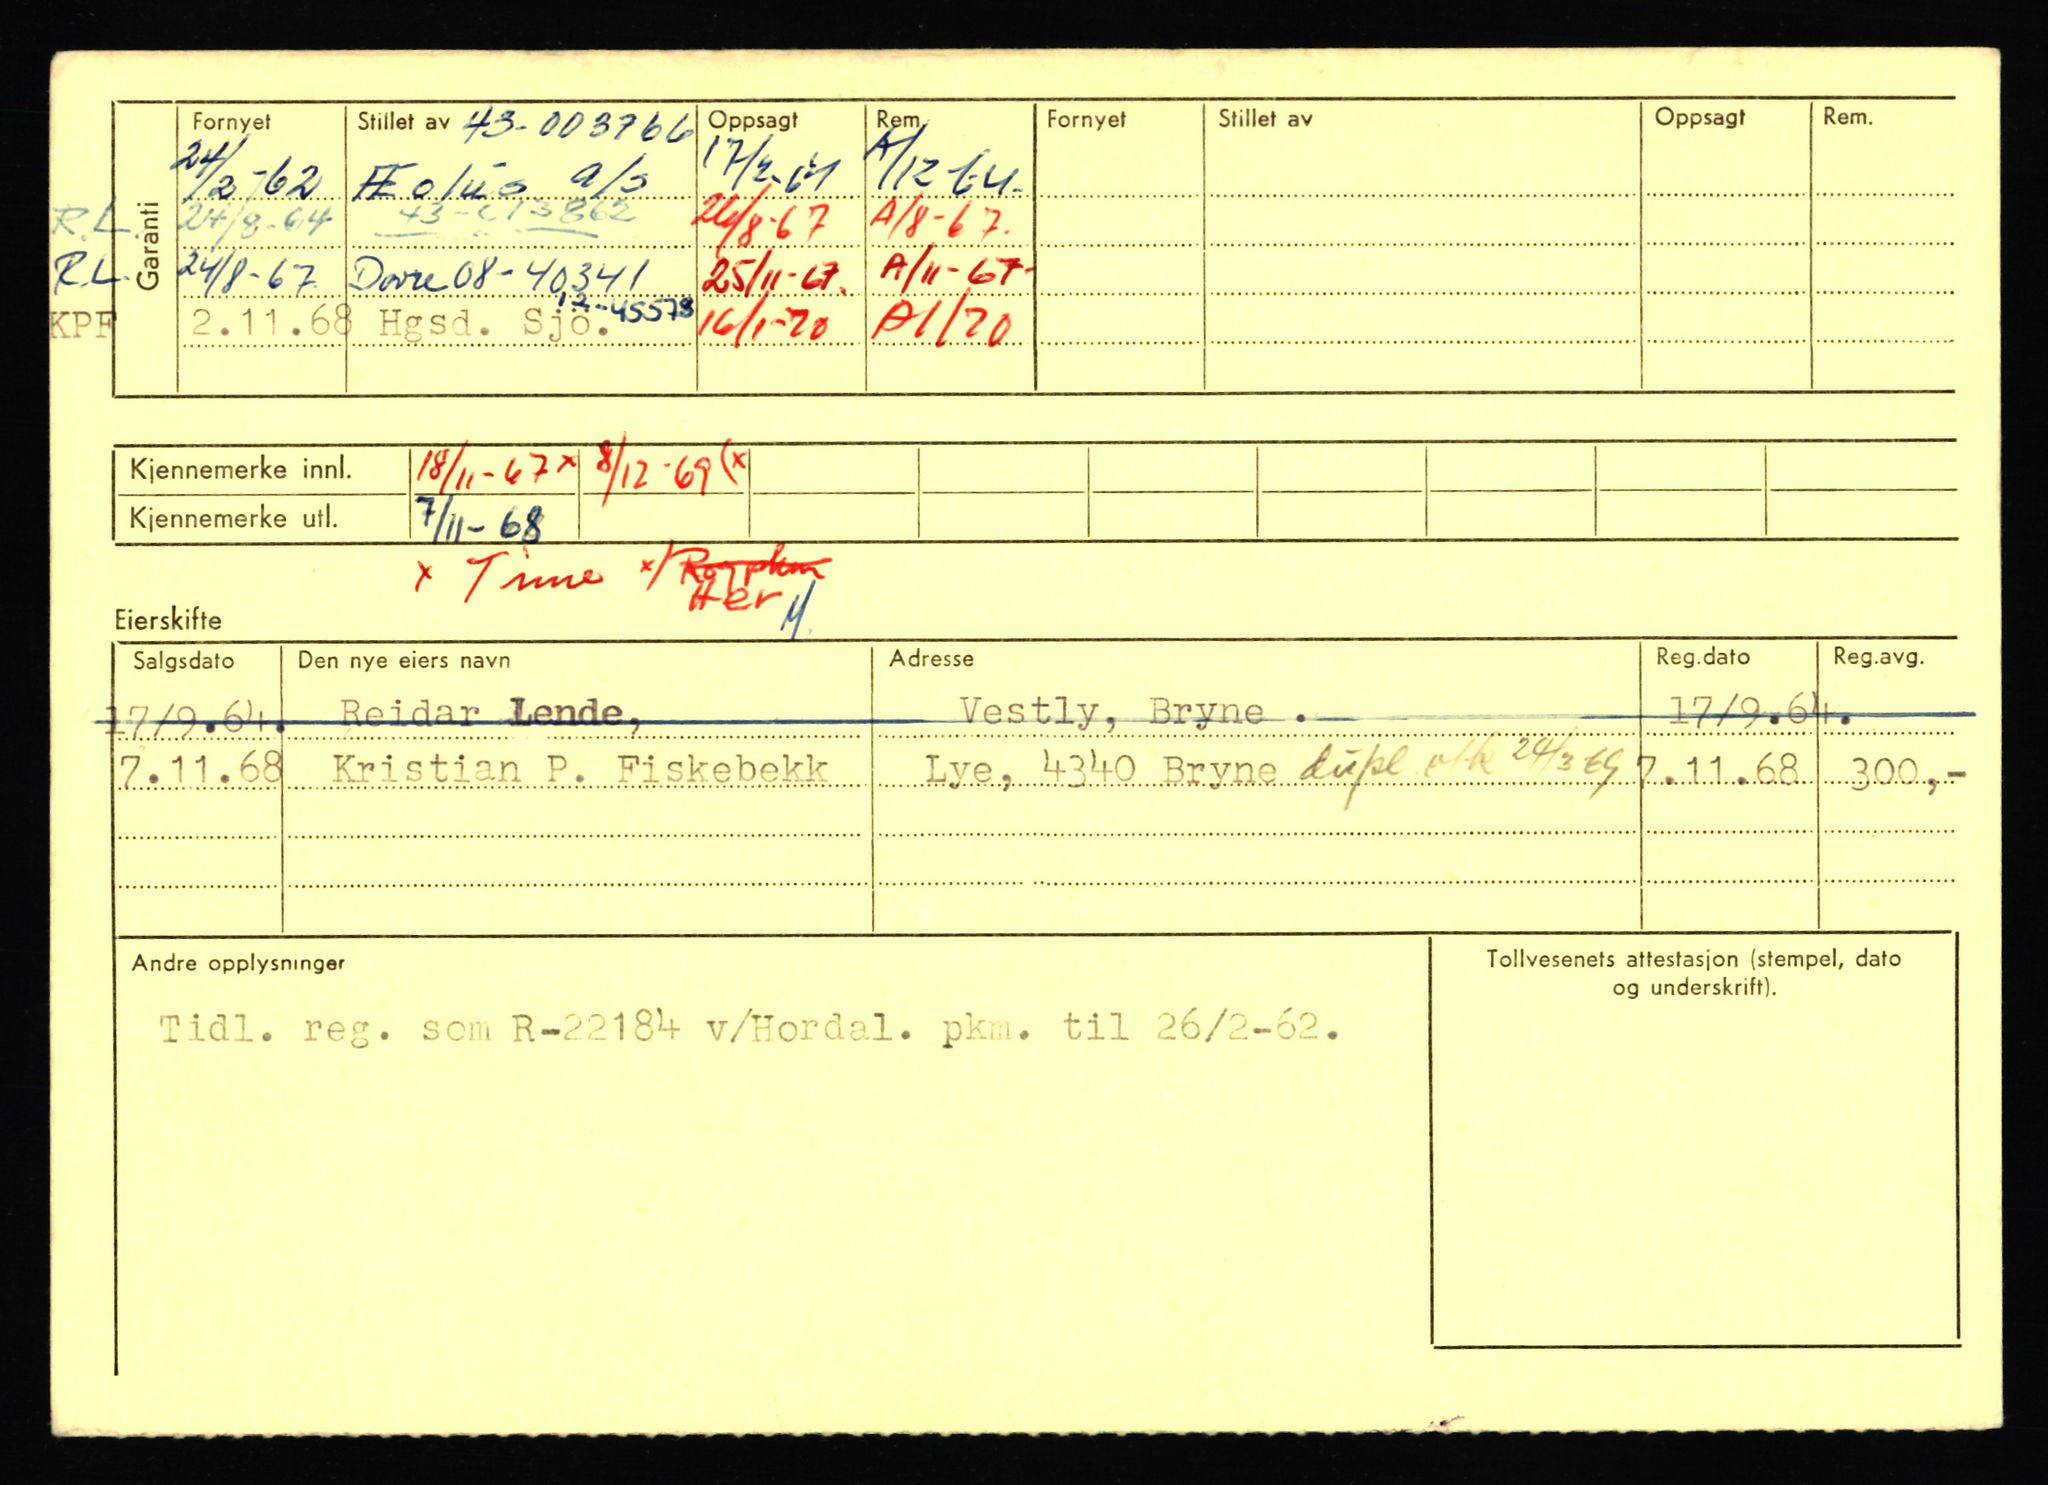 Garanti
Fornyet Stillet av 43-003766 Oppsagt Rem. Fornyet Stillet av Oppsagt Rem.
24/2-62 Æolus a/s 17/2-64 A/12-64.
R.L. 24/8-64 43-013862 26/8-67 A/8-67.
R.L. 24/8-67. Dovre 08-40341 25/11-67. A/11-67-
KPF 2.11.68 Hgsd. Sjö. 12-45578 16/1-70 A1/70
Kjennemerke innl. 18/11-67 x 8/12-69 (x
Kjennemerke utl. 7/11-68
x Time x/ Rog pkm
Her
Eierskifte
Salgsdato Den nye eiers navn Adresse Reg.dato Reg.avg.
17/9.64. Reidar Lende, Vestly, Bryne . 17/9.64.
7.11.68 Kristian P. Fiskebekk Lye, 4340 Bryne dupl. vtk 24/3 69 7.11.68 300,-
Andre opplysninger
Tollvesenets attestasjon (stempel, dato
og underskrift).
Tidl. reg. som R-22184 v/Hordal. pkm. til 26/2-62.